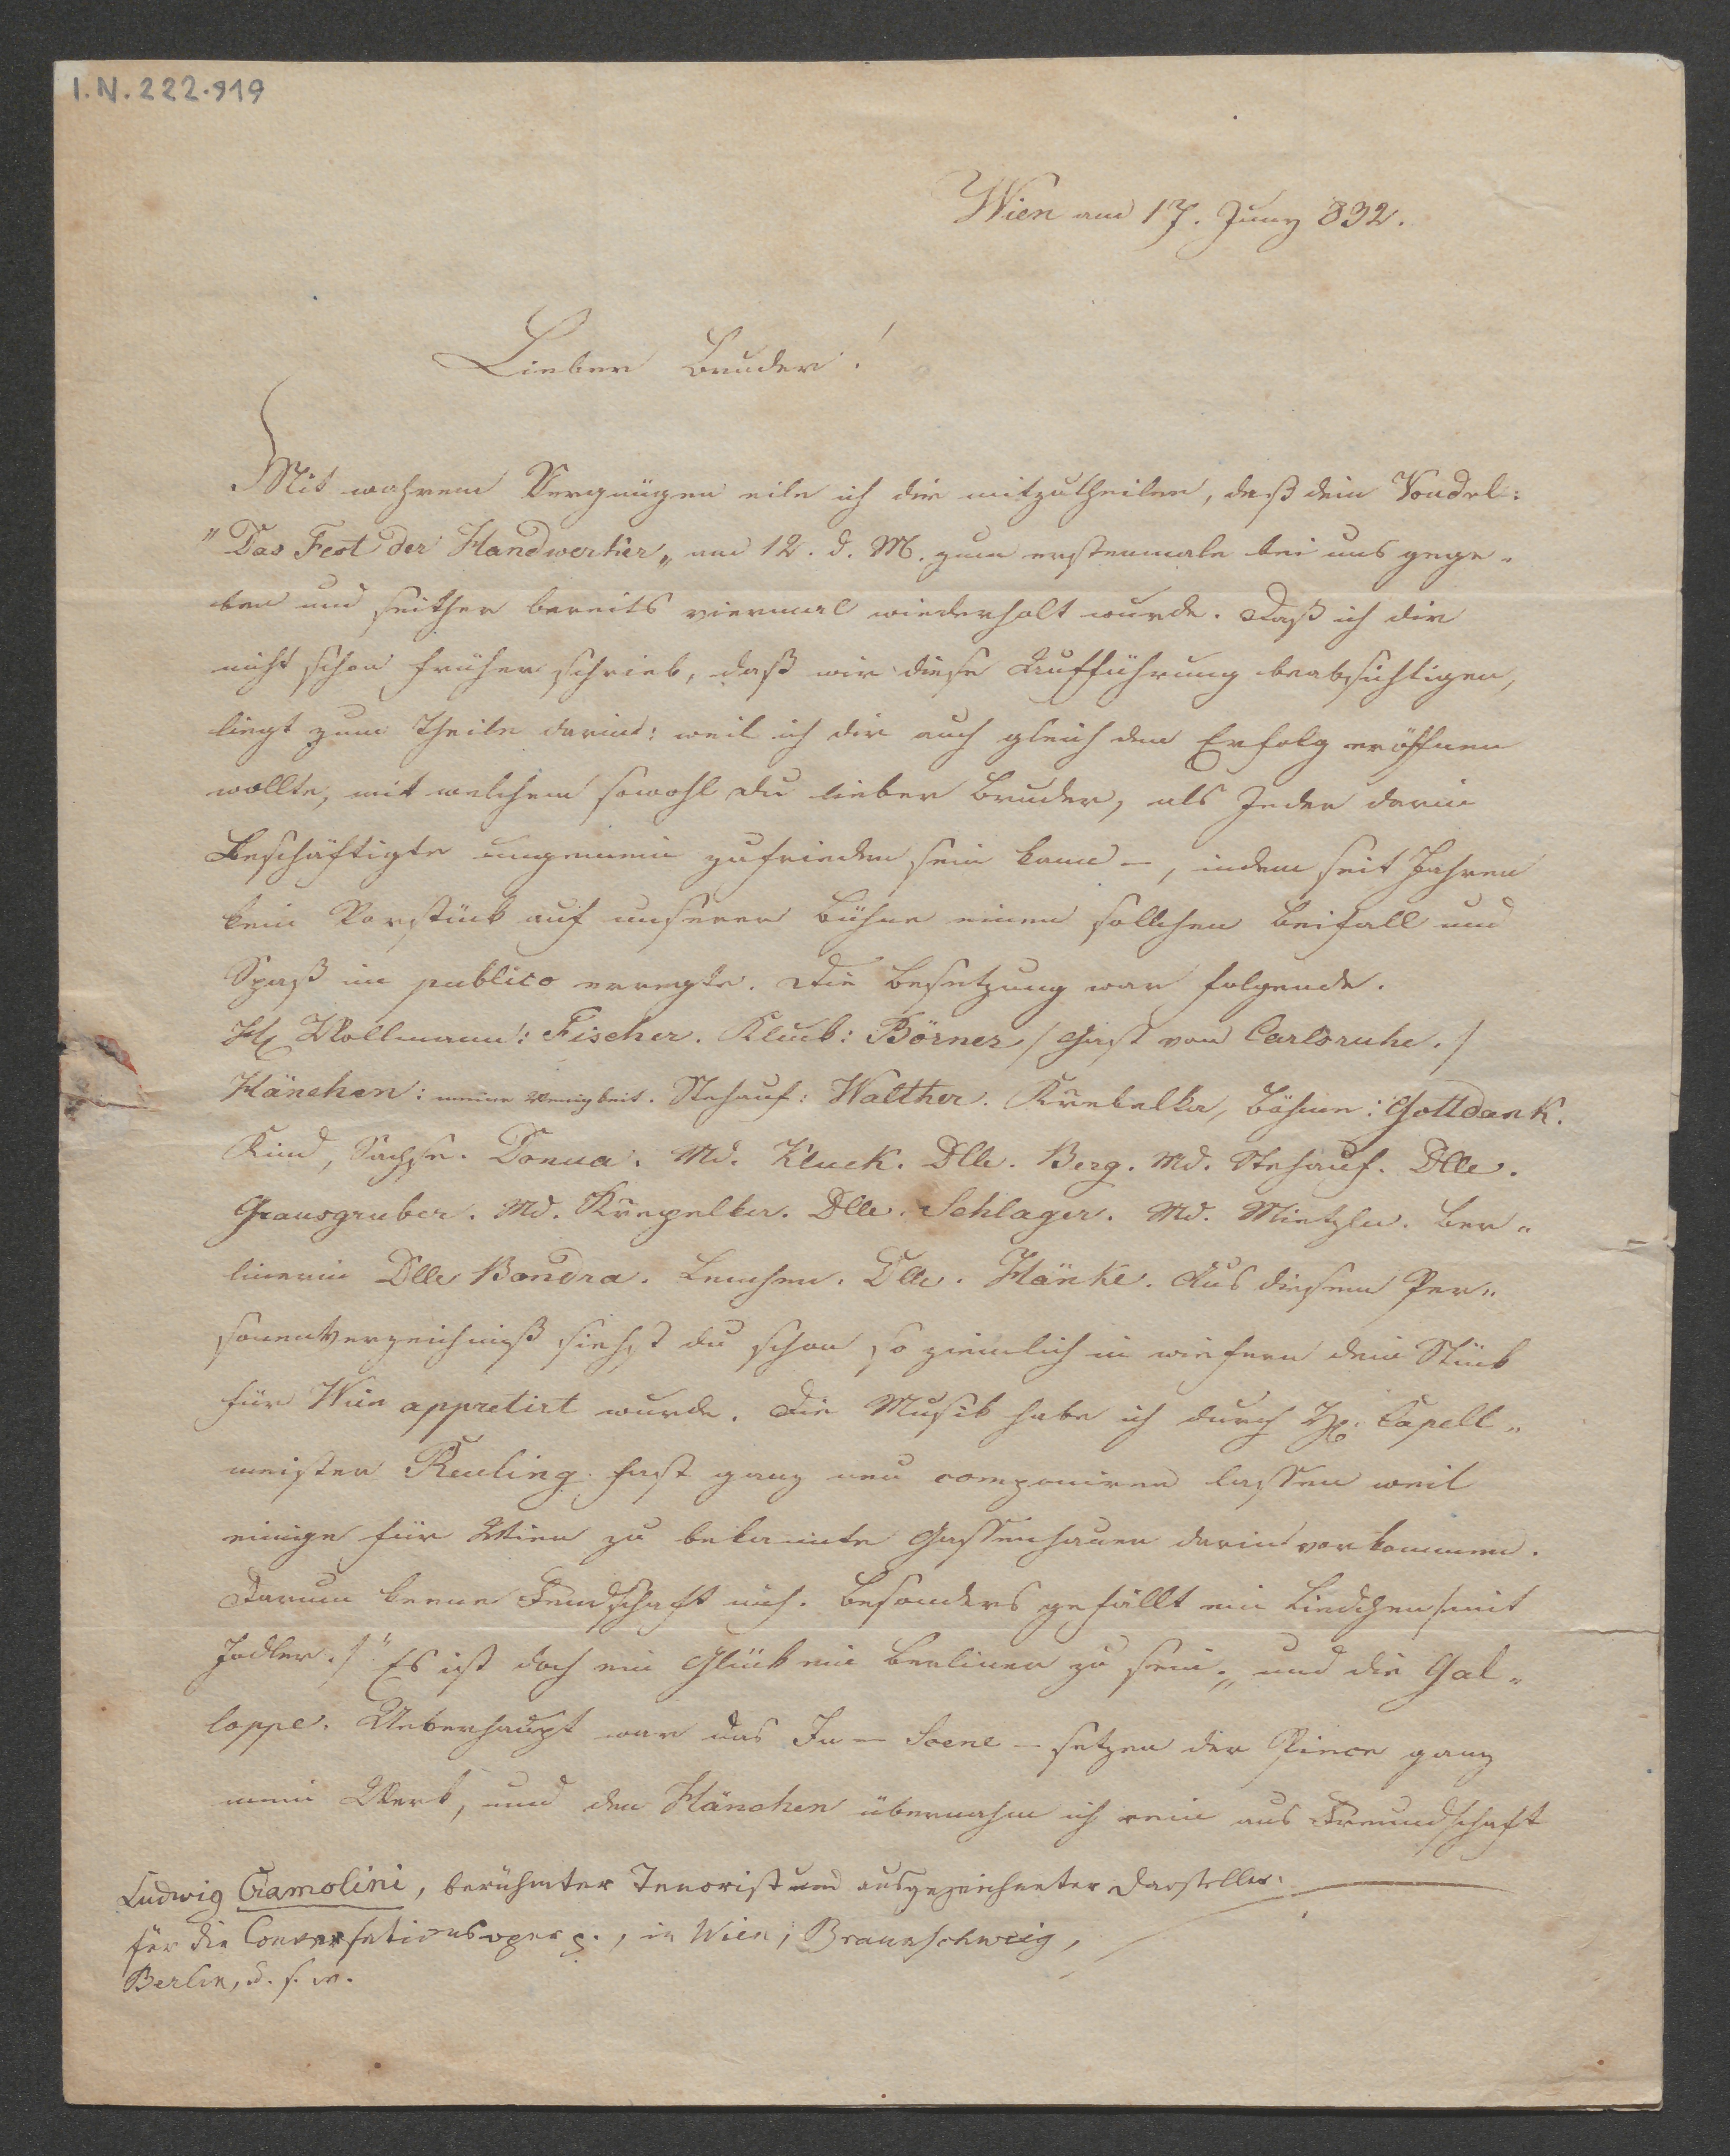 I.N. 222.919
Wien am 17. Juny 832.
Lieber Bruder!
Mit wahrem Vergnügen eile ich dir mitzutheilen, daß dein Vaudel:
"Das Fest der Handwerker„ am 12. d. M. zum erstenmale bei uns gege„
ben und seither bereits viermal wiederholt wurde. Daß ich dir
nicht schon früher schrieb, daß wir diese Aufführung beabsichtigen,
liegt zum Theile darin: weil ich dir auch gleich den Erfolg eröffnen
wollte, mit welchem sowohl du lieber Bruder, als Jeder darin
Beschäftigte ungemein zufrieden sein kann –, indem seit Jahren
kein Vorstück auf unserer Bühne einen sollchen Beifall und
Spaß im publico erregte. Die Besetzung war folgende.
H. Wollmann: Fischer. Kluck: Börner / Gast von Carlsruhe. /
Hänchen: meine Wenigkeit. Stehauf: Walther. Krebelka, Böhme: Gottdank.
Kind, Sachse. Donua. Md. Kluck. Dlle. Berg. Md. Stehauf. Dlle.
Grausgruber. Md. Krepelka. Dlle. Schlager. Md. Mietzla. Ber„
linerin Dlle Bondra. Lenchen. Dlle. Hänke. Aus diesem Per„
sonenverzeichniß siehst du schon so ziemlich in wiefern dein Stück
für Wien appretirt wurde. Die Musik habe ich durch H. Capell„
meister Reuling fast ganz neu componiren lassen weil
einige für Wien zu bekannte Gassenhauer darin vorkommen.
Darum keene Feindschaft nich. Besonders gefällt ein Liedchen /mit
Jodler./ "Es ist doch ein Glück ein Berliner zu sein.„ und die Gal„
loppe. Ueberhaupt war das In – Scene – setzen der Piece ganz
mein Werk, und den Hänchen übernahm ich rein aus Freundschaft
Ludwig Cramolini, berühmter Tenorist und ausgezeichneter Darsteller
für die Conversationsoper, in Wien, Braunschweig,
Berlin, u. s. w.